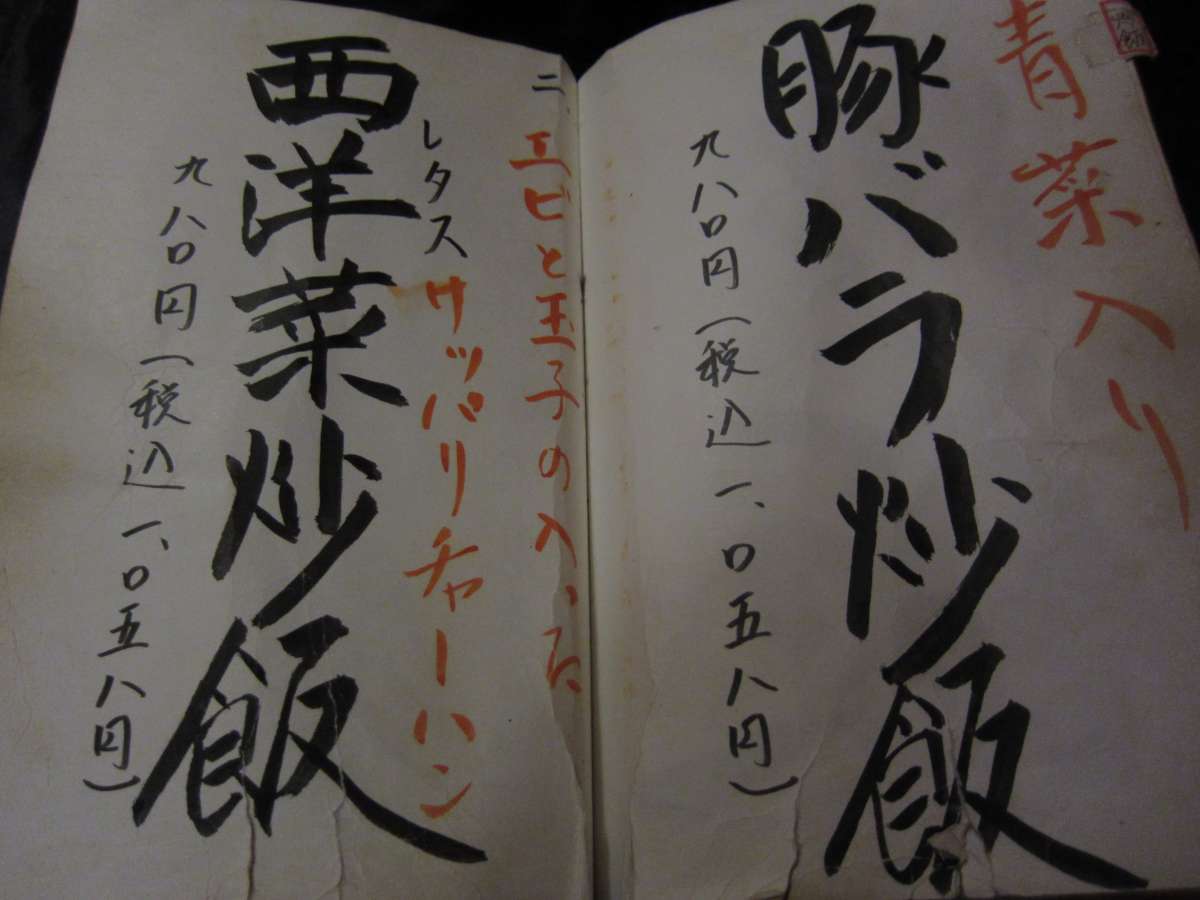 青菜入り
豚バラ炒飯
九八〇円(税込一、〇五八円)
二、エビと玉子の入った
レタス
サッパリチャーハン
西洋菜炒飯
九八〇円(税込一、〇五八円)